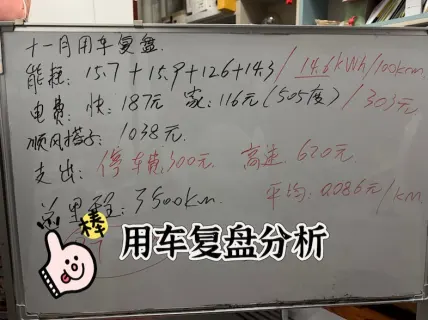 十一月用车复盘.
能耗: 15.7+15.9+12.6+14.3/14.6kWh/100km
电费: 快: 187元 家: 116元(505度)/303元
顺风搭子: 1038元.
支出: 停车费300元 高速 620元.
总里程: 3500km. 平均: 0.086元/km
棒
用车复盘分析